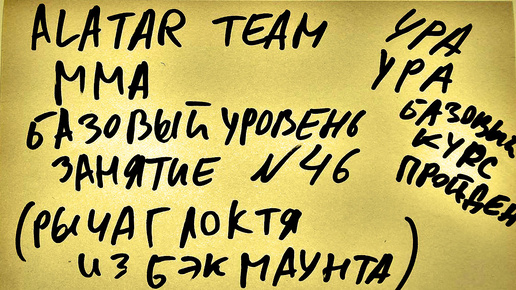 ALATAR TEAM
ММА
БАЗОВЫЙ УРОВЕНЬ
ЗАНЯТИЕ N46
(РЫЧАГ ЛОКТЯ
ИЗ БЭК МАУНТА)
УРА
УРА
БАЗОВЫЙ
КУРС
ПРОЙДЕН